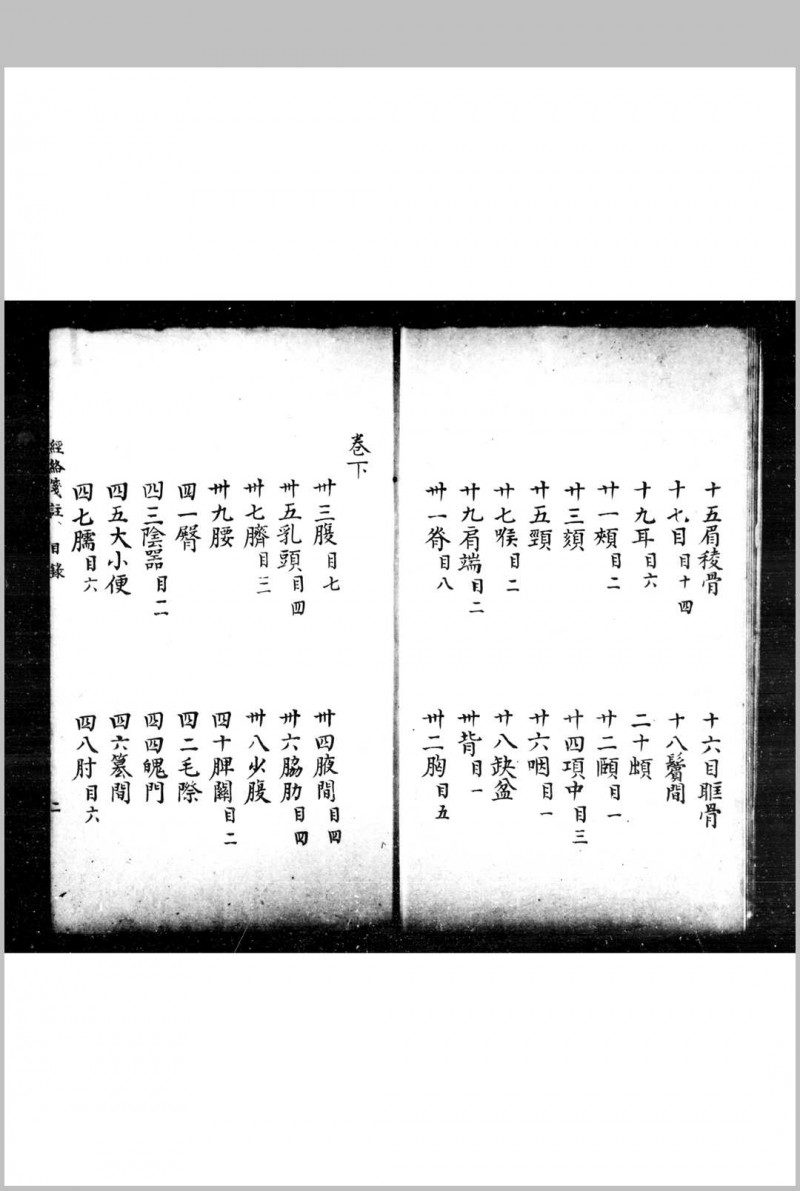 十五眉稜骨 十六目眶骨
十七目 目十四 十八鬢間
十九耳 目六 二十䪼
廿一頰 目二 廿二頤 目一
廿三頦 廿四項中 目三
廿五頸 廿六咽 目一
廿七喉 目二 廿八缺盆
廿九肩端 目二 卅背 目一
卅一脊 目八 卅二胸 目五
卷下
卅三腹 目七 卅四腋間 目四
卅五乳頭 目四 卅六脇肋 目四
卅七臍 目三 卅八少腹
卅九腰 四十脾關 目二
四一臀 四二毛際
四三陰器 目二 四四魄門
四五大小便 四六篡間
四七臑 目六 四八肘 目六
經絡箋註、目錄 二